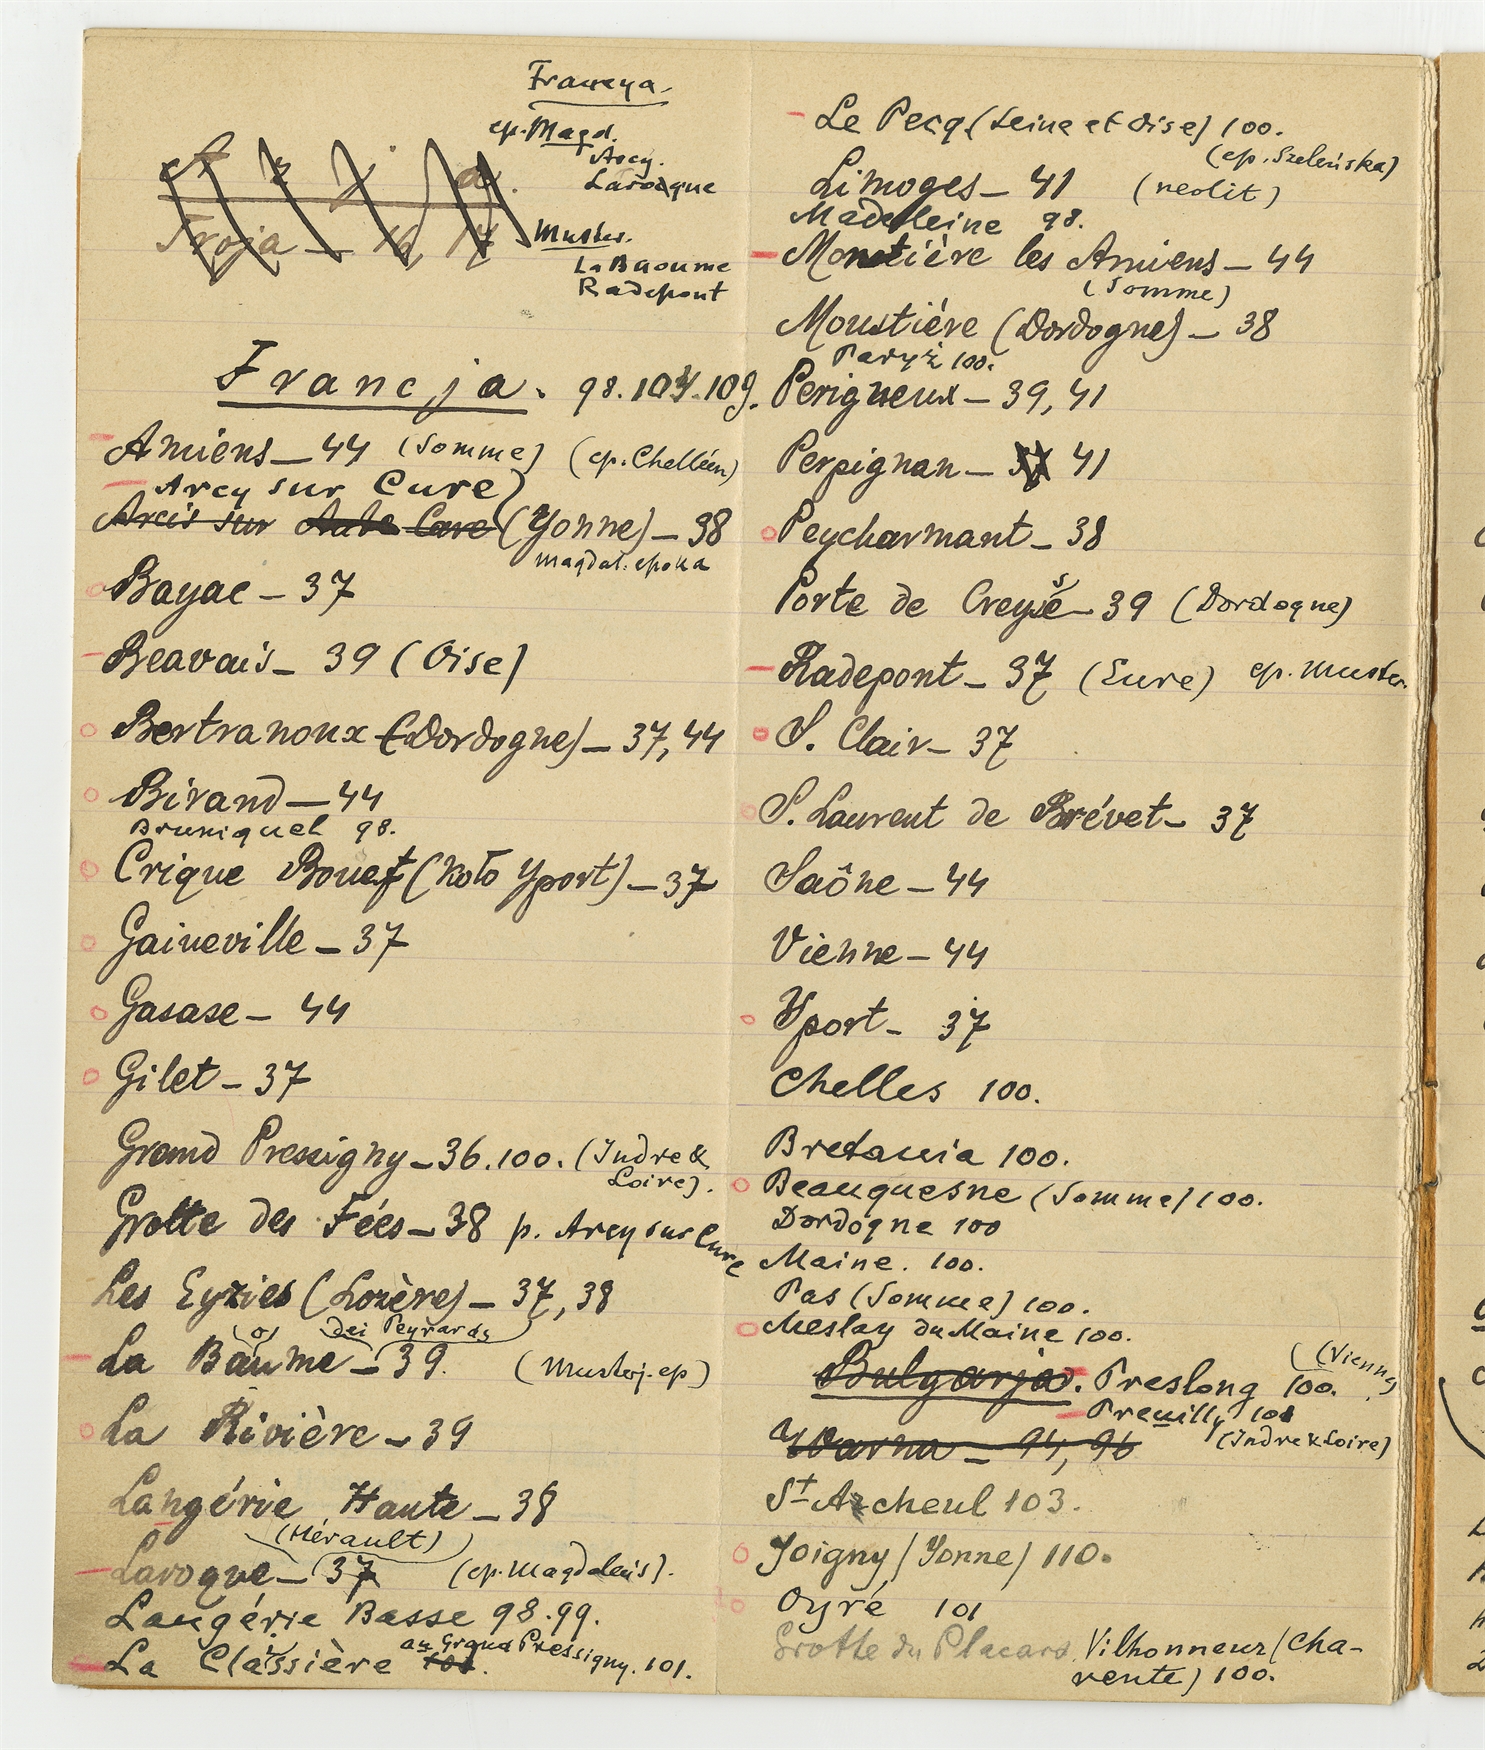 Francya.
ep. Magd.
Arcy.
Laroque
Muster.
La Baoume
Radepont
Troja — 16, 17
Francja. 98. 104. 109.
Amiens — 44 (Somme) (ep. Chelléen)
Arcy sur Cure)
Arcis sur Aube Cure (Yonne) — 38
magdal. epoka
Bayac — 37
Beavais — 39 (Oise)
Bertranoux (Dordogne) — 37, 44
Birand — 44
Bruniquel 98.
Crique Bouef (koło Yport) — 37
Gaineville — 37
Gasase — 44
Gilet — 37
Grand Pressigny — 36. 100. (Indre &
Loire).
Grotte des Fées — 38 p. Arcy sur Cure
Les Eyzies (Lozère) — 37, 38
(o) dei Peyrards
La Baume — 39. (Musterj. ep)
La Rivière — 39
Langérie Haute — 38
(Hérault)
Laroque — 37 (ep. Magdaleńs).
Langérie Basse 98. 99.
au Grand Pressigny. 101.
La Classière 101.
Le Pecq (Seine et Oise) 100.
(ep. Szeleńska)
Limoges — 41 (neolit)
Madelleine 98.
Monstière les Amiens — 44
(Somme)
Moustiére (Dordogne) — 38
Paryż 100.
Perigneux — 39, 41
Perpignan — 41
Peycharmant — 38
Porte de Creyse — 39 (Dordogne)
s
Radepont — 37 (Eure) ep. Muster.
S. Clair — 37
S. Laurent de Brévet — 37
Saône — 44
Vienne — 44
Yport — 37
Chelles 100.
Bretania 100.
Beauquesne (Somme) 100.
Dordogne 100
Maine. 100.
Pas (Somme) 100.
Meslay du Maine 100.
Bulgarja. Preslong 100. (Vienne)
Preuilly 101
Warna — 94, 96 (Indre & Loire)
St Acheul 103.
Joigny (Yonne) 110.
Oyré 101
Grotte du Placard, Vilhonneur (Cha-
rente) 100.